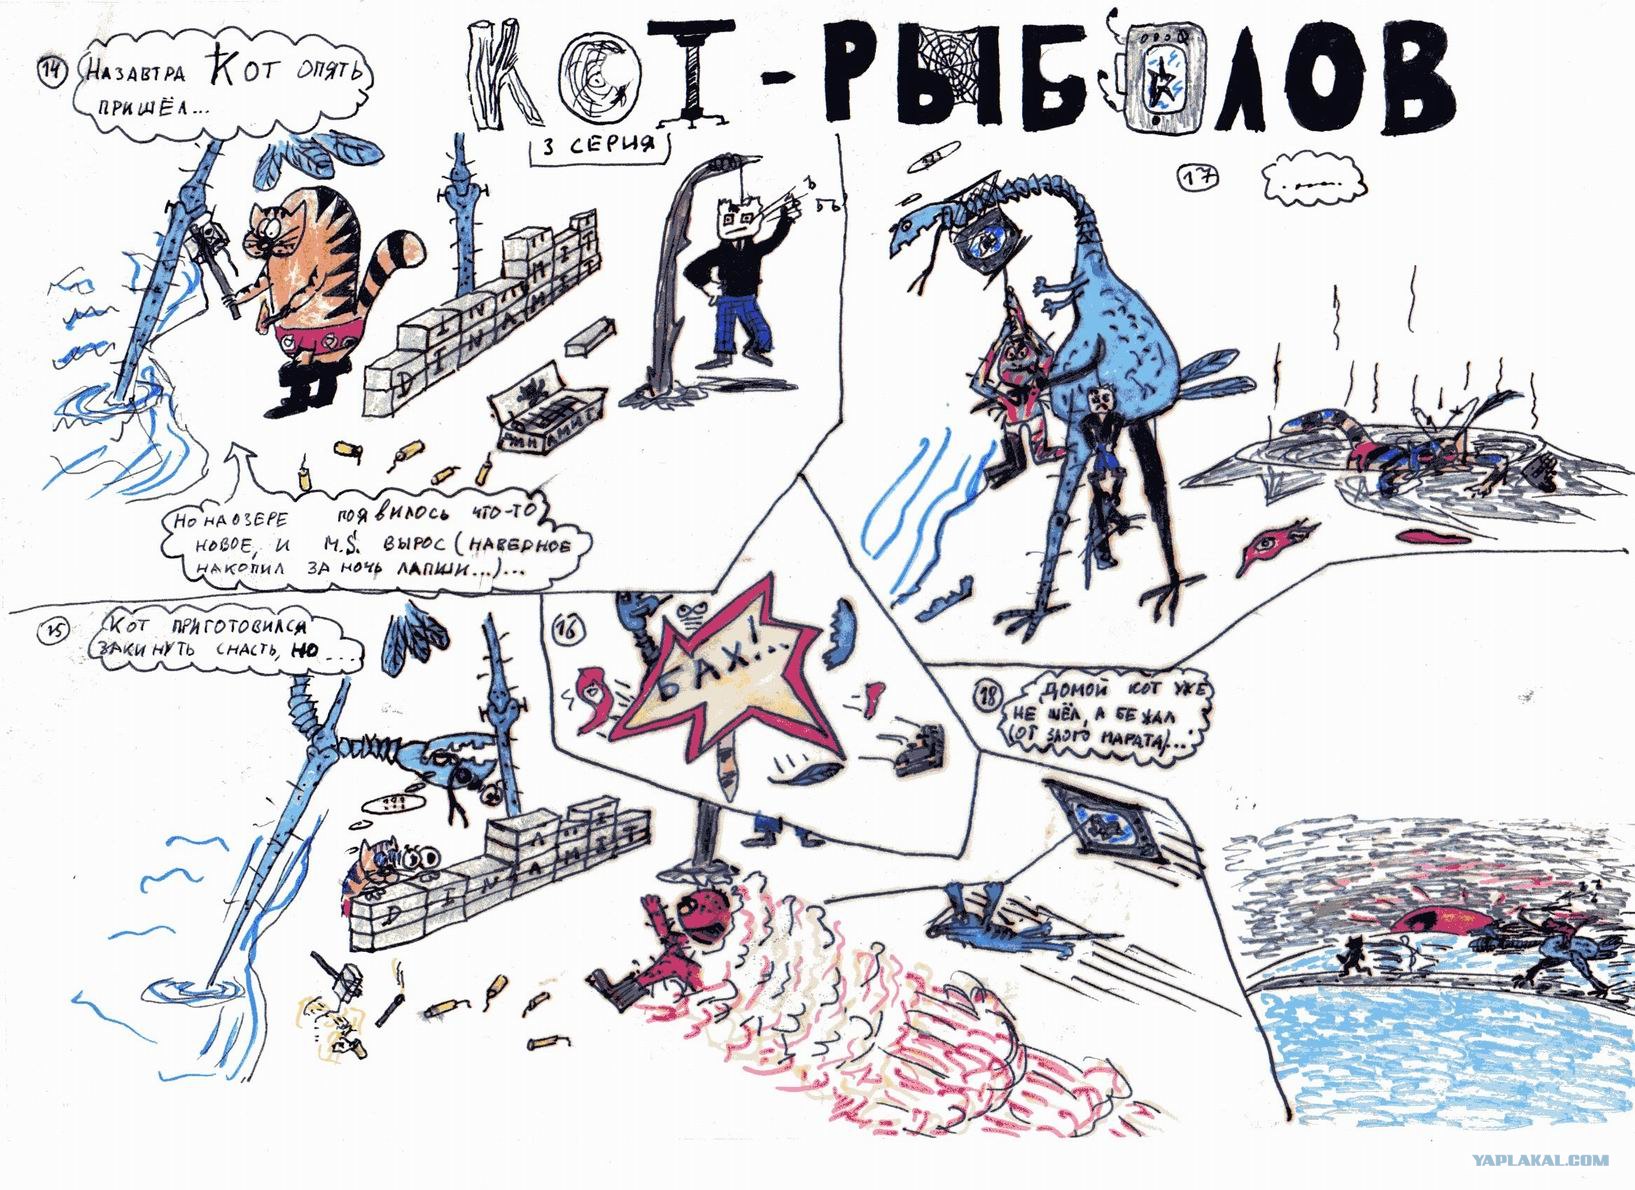 КОТ-РЫБОЛОВ
3 СЕРИЯ
14
НАЗАВТРА КОТ ОПЯТЬ
ПРИШЁЛ...
DINAMIT
ДИНАМИТ
НО НА ОЗЕРЕ ПОЯВИЛОСЬ ЧТО-ТО
НОВОЕ, И M.S. ВЫРОС (НАВЕРНОЕ
НАКОПИЛ ЗА НОЧЬ ЛАПШИ...)...
15
КОТ ПРИГОТОВИЛСЯ
ЗАКИНУТЬ СНАСТЬ, НО....
DINAMIT
16
БАХ!...
17
.....
18
ДОМОЙ КОТ УЖЕ
НЕ ШЁЛ, А БЕЖАЛ
(ОТ ЗЛОГО МАРАТА)...
YAPLAKAL.COM